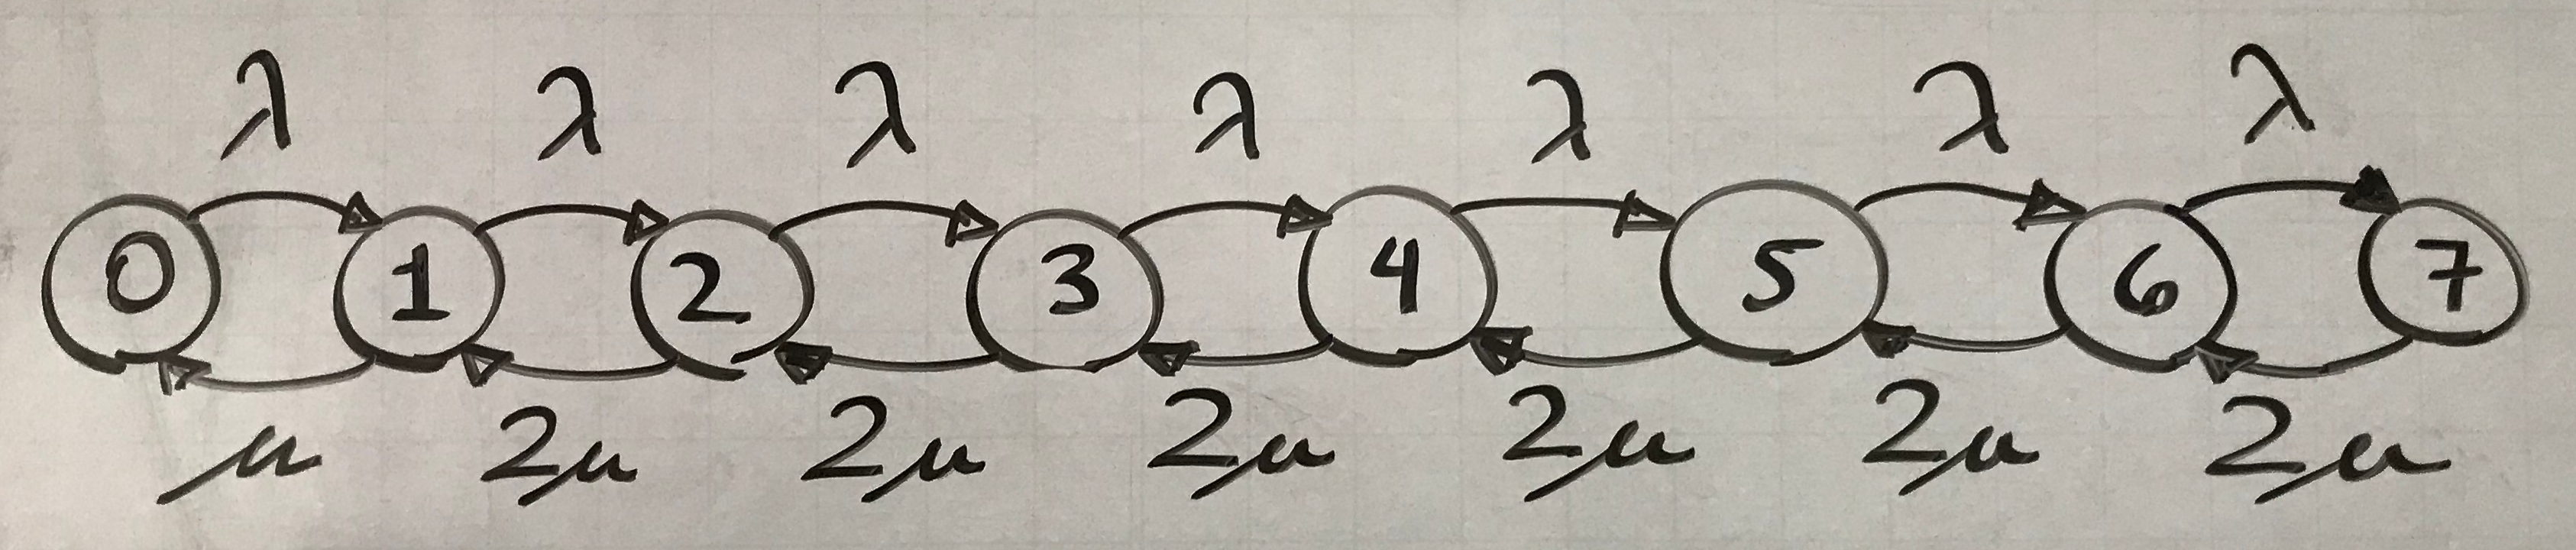 λ λ λ λ λ λ λ
0 1 2 3 4 5 6 7
μ 2μ 2μ 2μ 2μ 2μ 2μ